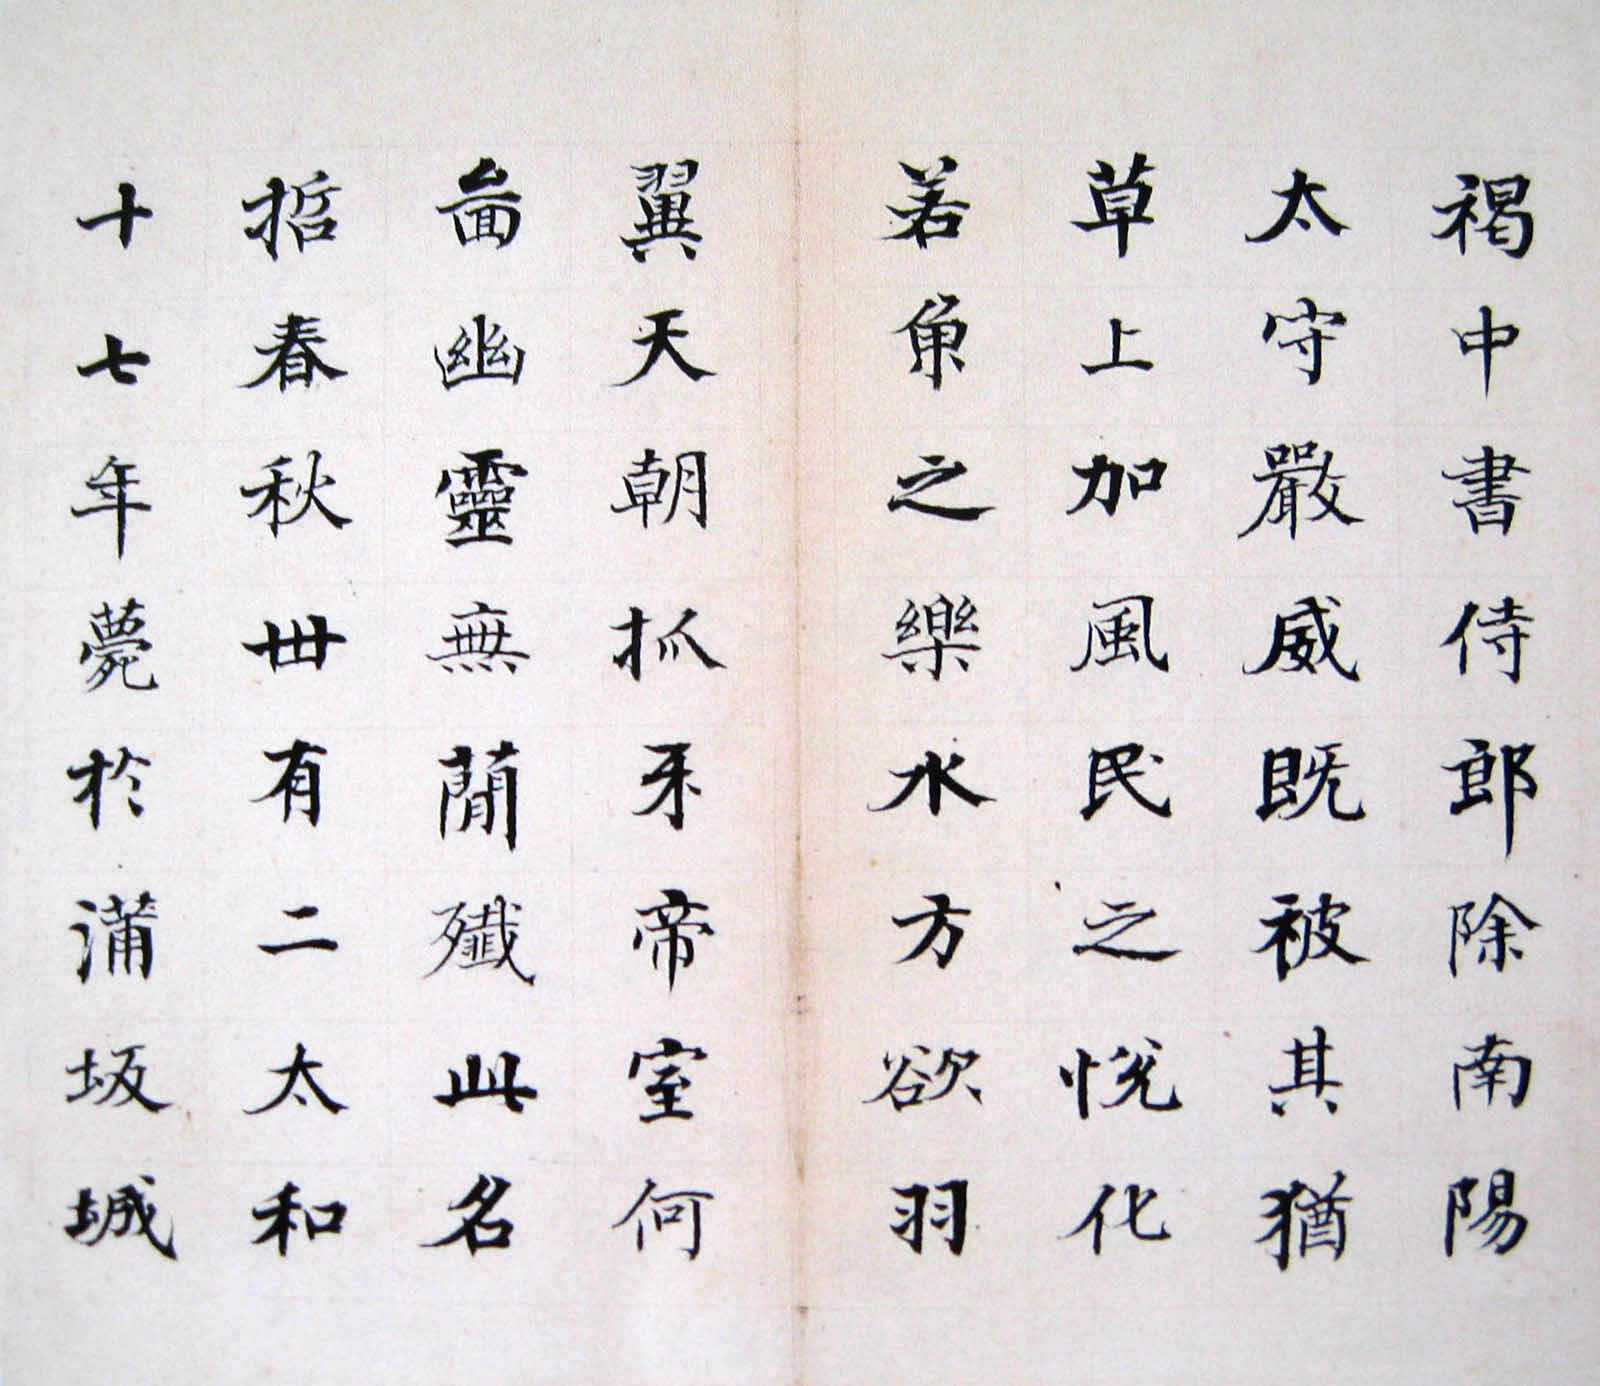 褐中書侍郎除南陽
太守嚴威既被其猶
草上加風民之悅化
若魚之樂水方欲羽
翼天朝抓牙帝室何
啚幽靈無簡殲此名
哲春秋卅有二太和
十七年薨於蒲坂城